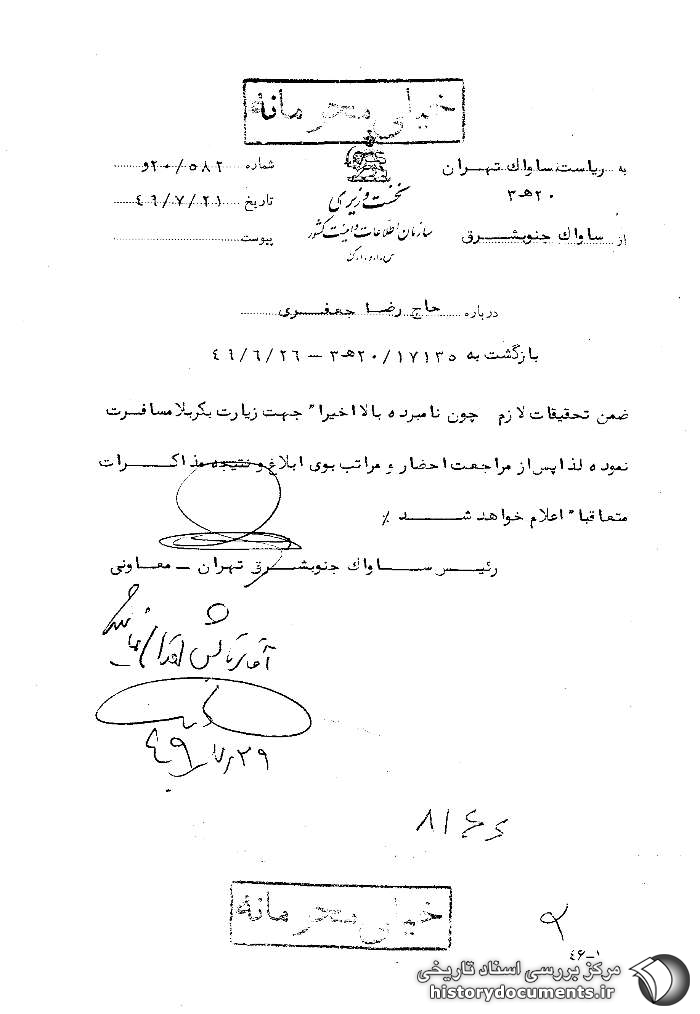 خیلی محرمانه
به ریاست ساواك تهران
۲۰هـ۳
از ساواك جنوبشرق
نخست وزیری
سازمان اطلاعات و امنیت کشور
س.ا.و.ا.ک
شماره ۲۰/۵۸۲و
تاریخ ۴۹/۷/۲۱
پیوست
درباره حاج رضا جعفری
بازگشت به ۲۰/۱۷۱۳۵هـ۳ – ۴۹/۶/۲۶
ضمن تحقیقات لازم چون نامبرده بالا اخیراً جهت زیارت بکربلا مسافرت
نموده لذا پس از مراجعت احضار و مراتب بوی ابلاغ و نتیجه مذاکرات
متعاقباً اعلام خواهد شد ٪
رئیس ساواك جنوبشرق تهران – معاونی
۴۹/۷/۲۹
خیلی محرمانه
۴۶–۱
مرکز بررسی اسناد تاریخی
historydocuments.ir